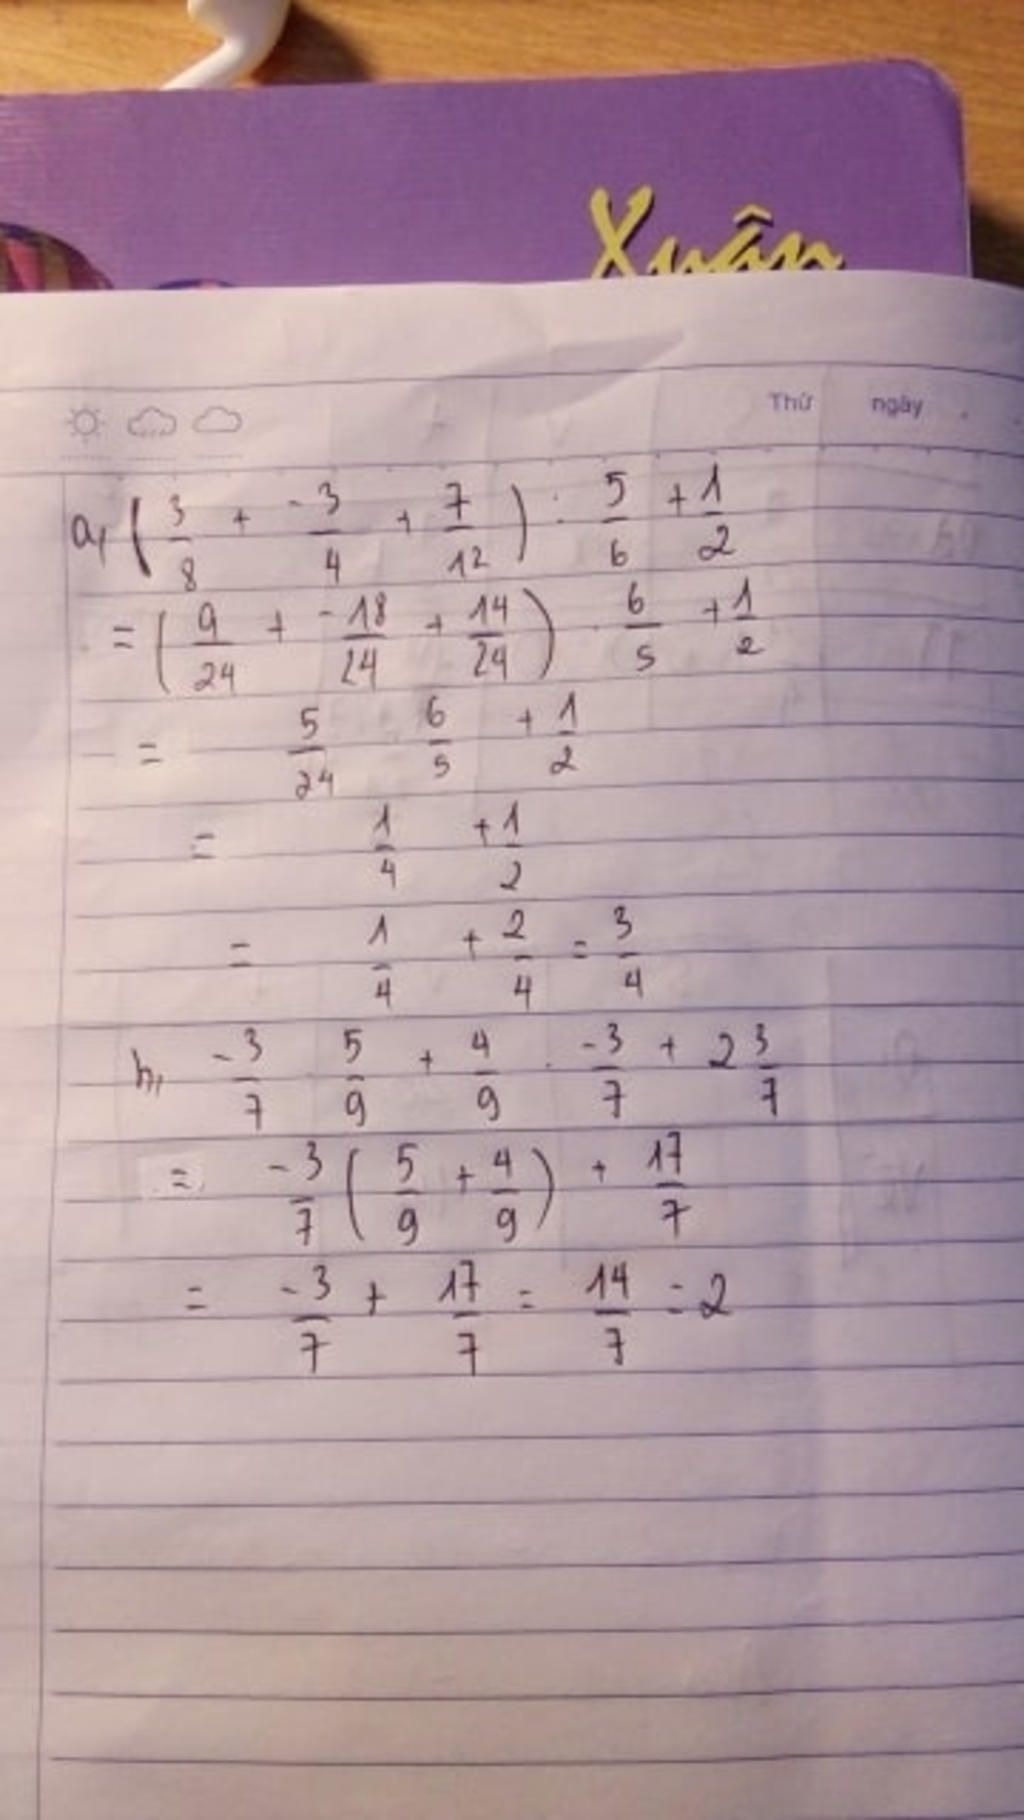 Xuân
Thứ ngày
a, ( 3/8 + -3/4 + 7/12 ) : 5/6 + 1/2
= ( 9/24 + -18/24 + 14/24 ) . 6/5 + 1/2
= 5/24 6/5 + 1/2
= 1/4 + 1/2
= 1/4 + 2/4 = 3/4
b, -3/7 . 5/9 + 4/9 . -3/7 + 2 3/7
= -3/7 ( 5/9 + 4/9 ) + 17/7
= -3/7 + 17/7 = 14/7 = 2